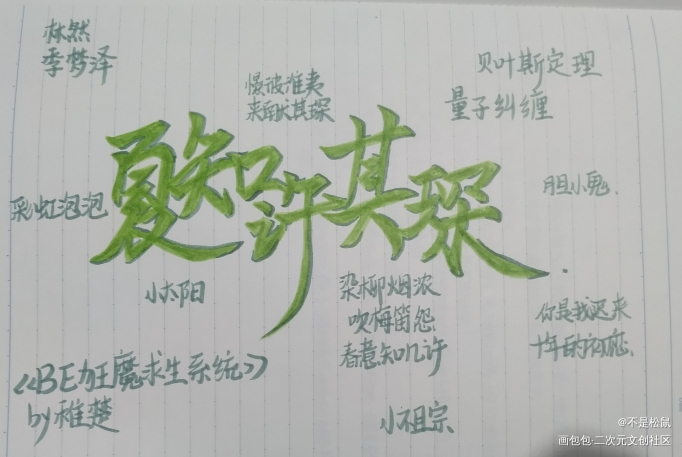 林然
季梦泽
憬彼淮夷
来献其琛
贝叶斯定理
量子纠缠
夏知许其琛
彩虹泡泡
胆小鬼.
小太阳
染柳烟浓
吹梅笛怨
春意知几许
你是我迟来
十年的初恋.
《BE狂魔求生系统》
by稚楚
小祖宗
@不是松鼠
画包包·二次元文创社区